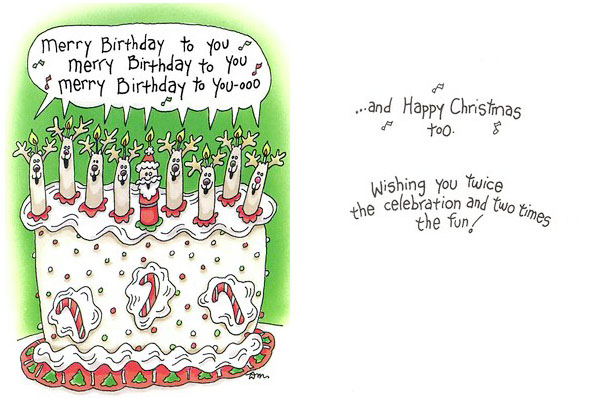 Merry Birthday to you
merry Birthday to you
merry Birthday to You-ooo
...and Happy Christmas
too.
Wishing you twice
the celebration and two times
the fun!